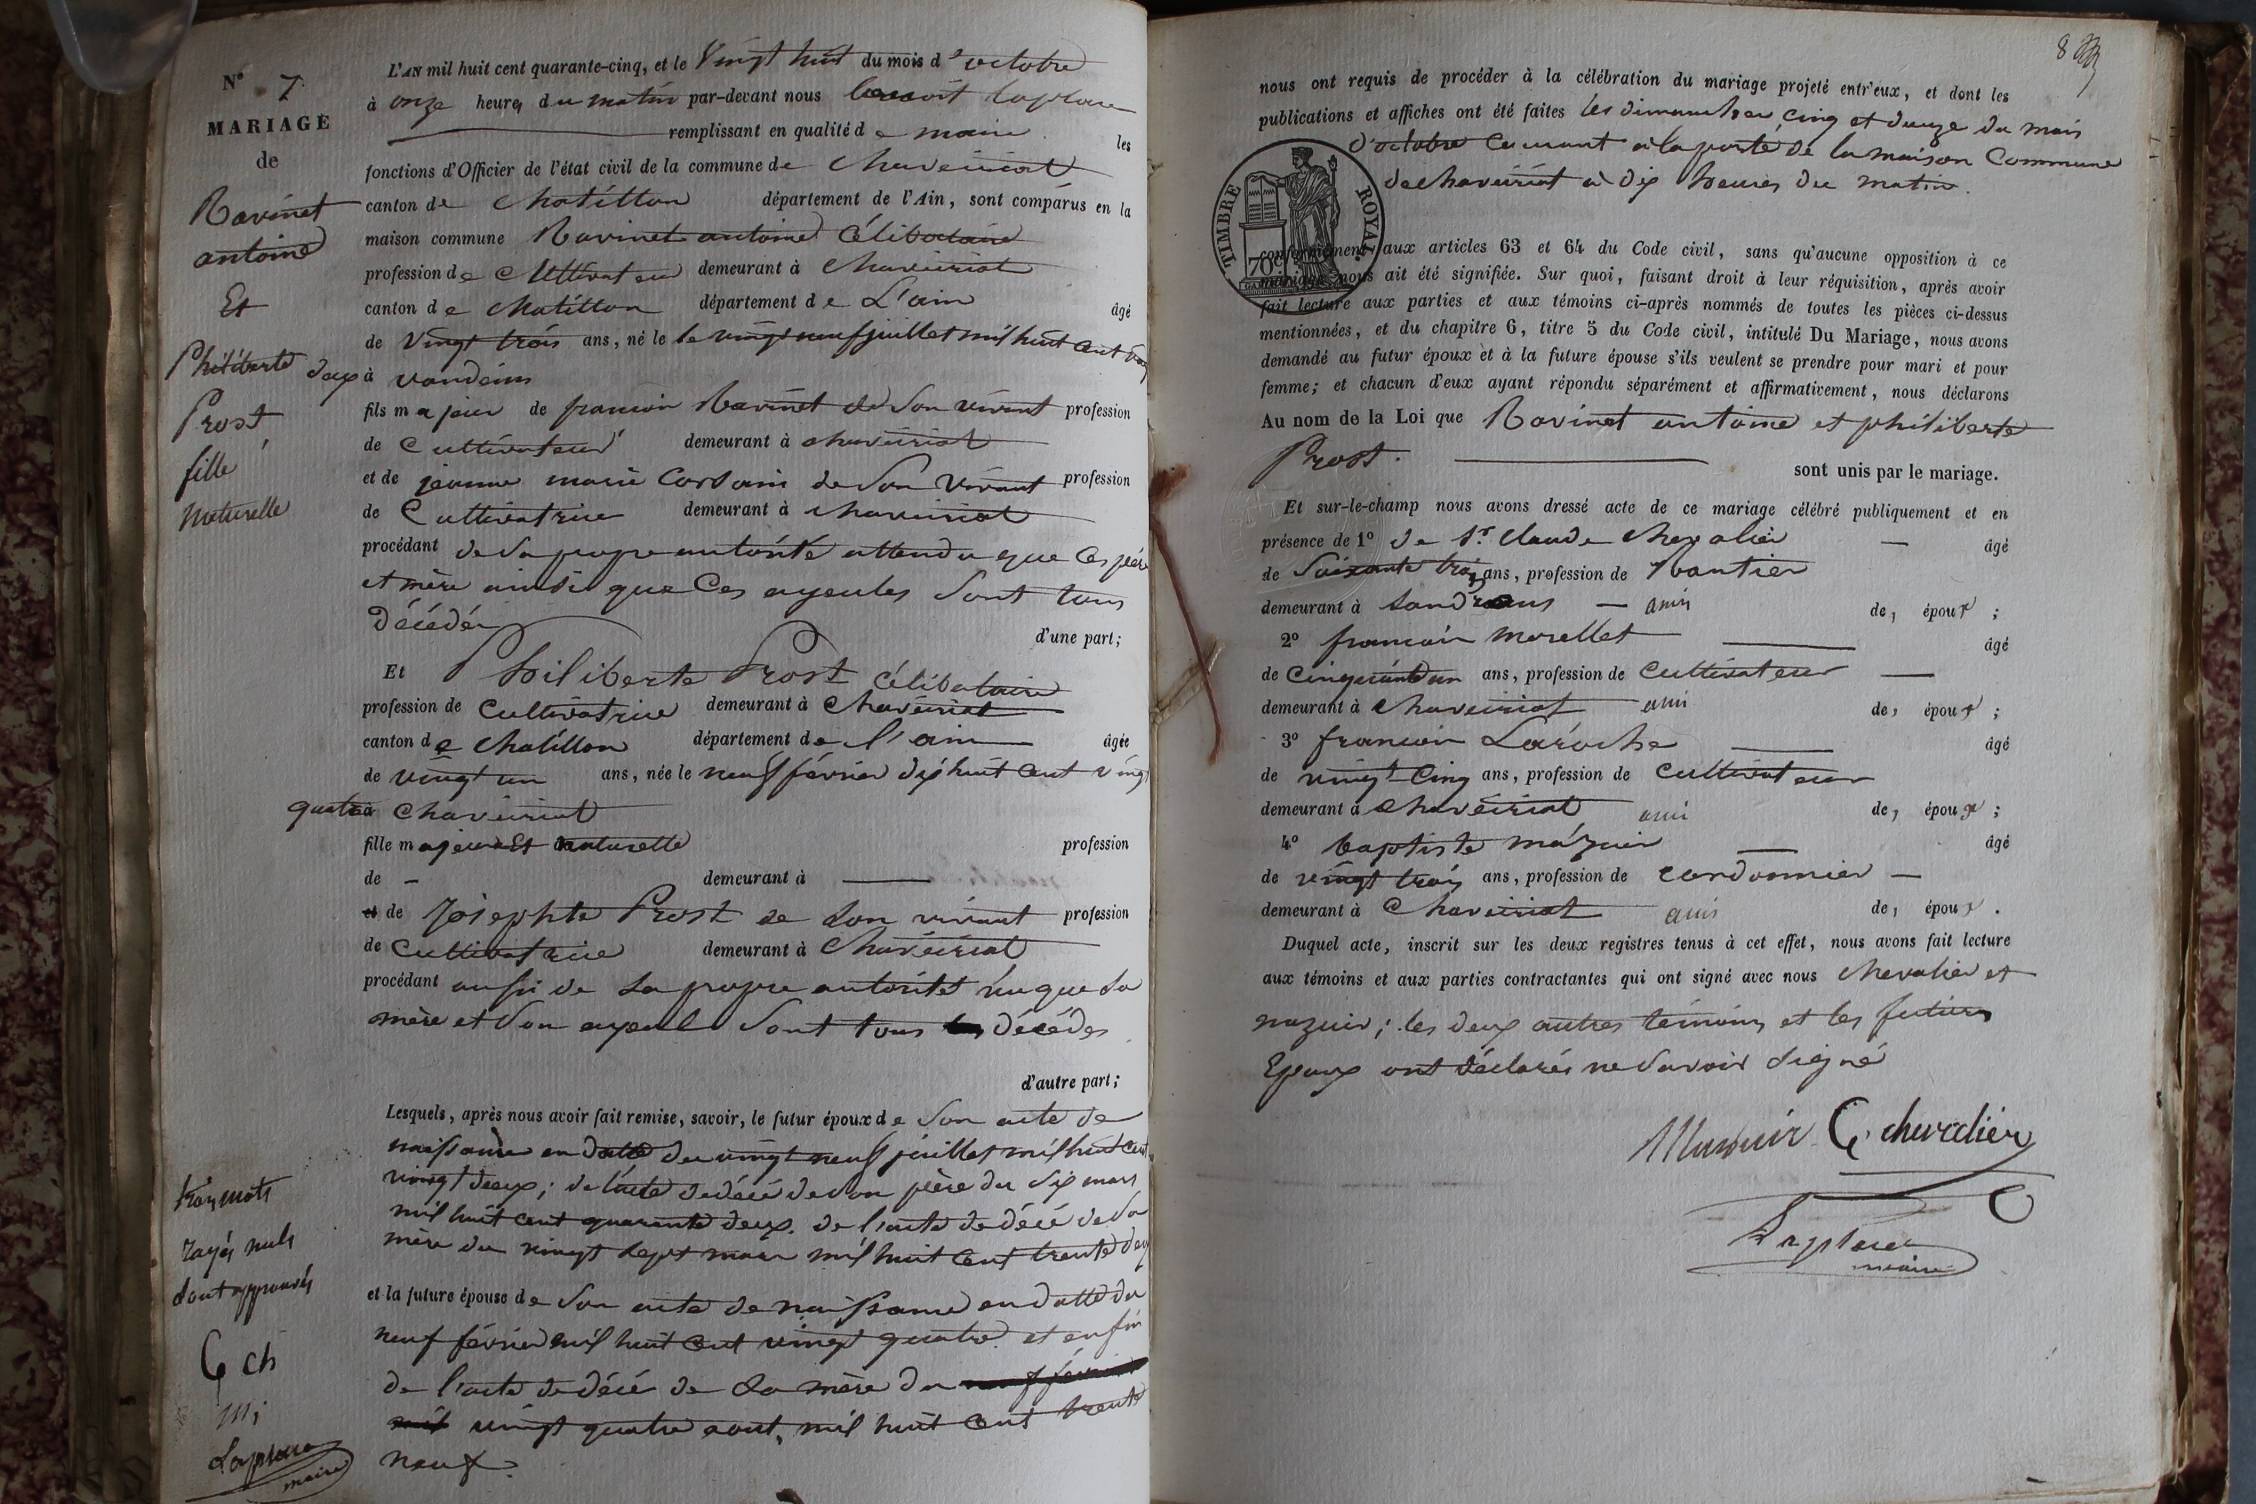 N° 7.
MARIAGE
de
Ravinet
antoine
Et
Philiberte
Prost
fille
naturelle
L'AN mil huit cent quarante-cinq, et le Vingt huit du mois d'octobre
à onze heures du matin par-devant nous benoit laplace
remplissant en qualité de maire les
fonctions d'Officier de l'état civil de la commune de chaveiriat
canton de chatillon département de l'Ain, sont comparus en la
maison commune Ravinet antoine Célibataire
profession de Cultivateur demeurant à chaveiriat
canton de chatillon département de L'ain âgé
de Vingt trois ans, né le le vingt neuf juillet mil huit cent vingt
deux à vandeins
fils majeur de francois Ravinet de son vivant profession
de Cultivateur demeurant à chaveiriat
et de jeanne marie Cordani de son vivant profession
de Cultivatrice demeurant à chaveiriat
procédant de sa propre autorité attendu que Ces père
et mère ainsi que Ces ayeules sont tous
Décédés
d'une part;
Et Philiberte Prost Célibataire
profession de Cultivatrice demeurant à Chaveiriat
canton de chatillon département de l'ain âgée
de vingt un ans, née le neuf février dix huit cent vingt
quatre à chaveiriat
fille majeure Et naturelle profession
de - demeurant à
et de Josephte Prost de son vivant profession
de Cultivatrice demeurant à Chaveiriat
procédant aussi de sa propre autorités vu que sa
mère et son ayeul sont tous décédés
d'autre part;
Lesquels, après nous avoir fait remise, savoir, le futur époux de son acte de
naissance en datte du vingt neuf juillet mil huit cent
vingt deux; de l'acte de décé de son père du six mars
mil huit cent quarante deux. de l'acte de décé de sa
mère du vingt sept mars mil huit cent trente deux
et la future épouse de son acte de naissance en datte du
neuf février mil huit cent vingt quatre. et enfin
de l'acte de décé de sa mère du neuf février
mil vingt quatre aout, mil huit cent trente
neuf.
trois mots
rayés nuls
sont approuvés
C ch
mi
Laplace
maire
8
nous ont requis de procéder à la célébration du mariage projeté entr'eux, et dont les
publications et affiches ont été faites les dimanches cinq et douze du mois
d'octobre Courant à la porte de la maison Commune
de chaveiriat à dix heures du matin.
TIMBRE ROYAL
70c
conformément aux articles 63 et 64 du Code civil, sans qu'aucune opposition à ce
mariage nous ait été signifiée. Sur quoi, faisant droit à leur réquisition, après avoir
fait lecture aux parties et aux témoins ci-après nommés de toutes les pièces ci-dessus
mentionnées, et du chapitre 6, titre 5 du Code civil, intitulé Du Mariage, nous avons
demandé au futur époux et à la future épouse s'ils veulent se prendre pour mari et pour
femme; et chacun d'eux ayant répondu séparément et affirmativement, nous déclarons
Au nom de la Loi que Ravinet antoine et philiberte
Prost. sont unis par le mariage.
Et sur-le-champ nous avons dressé acte de ce mariage célébré publiquement et en
présence de 1° de Sr. Claude Chevalier âgé
de Soixante trois ans, profession de Rantier
demeurant à Sandrans amis des époux;
2° francois morellet âgé
de Cinquante un ans, profession de Cultivateur
demeurant à Chaveiriat ami des époux;
3° francois Laroche âgé
de vingt-Cinq ans, profession de Cultivateur
demeurant à Chaveiriat ami des époux;
4° baptiste mazuir âgé
de vingt trois ans, profession de cordonnier
demeurant à Chaveiriat amis des époux.
Duquel acte, inscrit sur les deux registres tenus à cet effet, nous avons fait lecture
aux témoins et aux parties contractantes qui ont signé avec nous chevalier et
mazuir; les deux autres témoins et les futurs
Epoux ont déclarés ne savoir signé
Mazuir C. chevalier
Laplace
maire